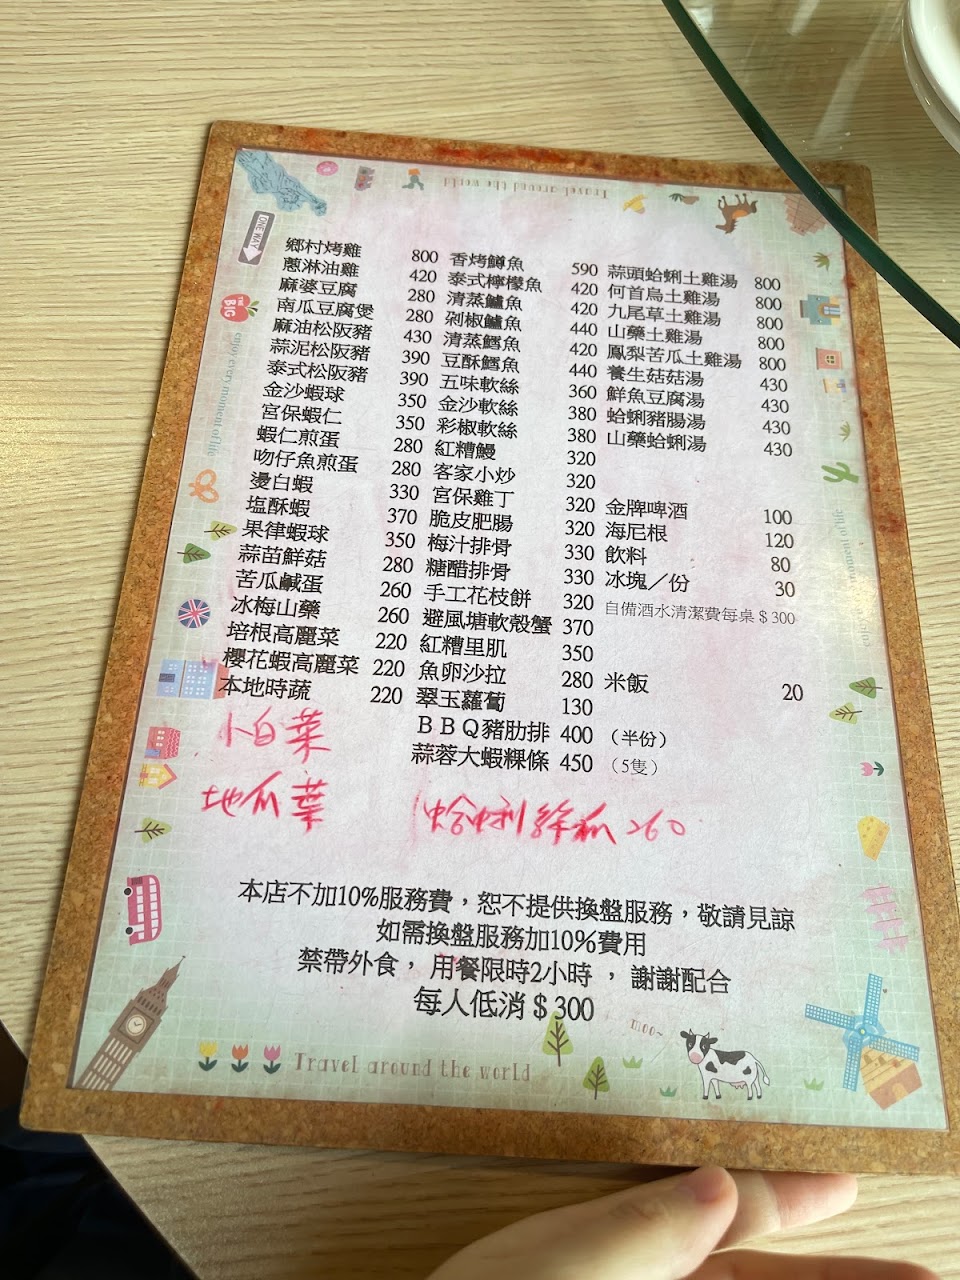 Travel around the world
ONE WAY
THE BIG
enjoy every moment of life
鄉村烤雞 800
蔥淋油雞 420
麻婆豆腐 280
南瓜豆腐煲 280
麻油松阪豬 430
蒜泥松阪豬 390
泰式松阪豬 390
金沙蝦球 350
宮保蝦仁 350
蝦仁煎蛋 280
吻仔魚煎蛋 280
燙白蝦 330
塩酥蝦 370
果律蝦球 350
蒜苗鮮菇 280
苦瓜鹹蛋 260
冰梅山藥 260
培根高麗菜 220
櫻花蝦高麗菜 220
本地時蔬 220
小白菜
地瓜葉
香烤鱒魚 590
泰式檸檬魚 420
清蒸鱸魚 420
剁椒鱸魚 440
清蒸鱈魚 420
豆酥鱈魚 440
五味軟絲 360
金沙軟絲 380
彩椒軟絲 380
紅糟鰻 320
客家小炒 320
宮保雞丁 320
脆皮肥腸 320
梅汁排骨 330
糖醋排骨 330
手工花枝餅 320
避風塘軟殼蟹 370
紅糟里肌 350
魚卵沙拉 280
翠玉蘿蔔 130
ＢＢＱ豬肋排 400（半份）
蒜蓉大蝦粿條 450（5隻）
蛤蜊絲瓜 260
蒜頭蛤蜊土雞湯 800
何首烏土雞湯 800
九尾草土雞湯 800
山藥土雞湯 800
鳳梨苦瓜土雞湯 800
養生菇菇湯 430
鮮魚豆腐湯 430
蛤蜊豬腸湯 430
山藥蛤蜊湯 430
金牌啤酒 100
海尼根 120
飲料 80
冰塊／份 30
自備酒水清潔費每桌＄300
米飯 20
本店不加10%服務費，恕不提供換盤服務，敬請見諒
如需換盤服務加10%費用
禁帶外食， 用餐限時2小時 ， 謝謝配合
每人低消＄300
moo~
Travel around the world